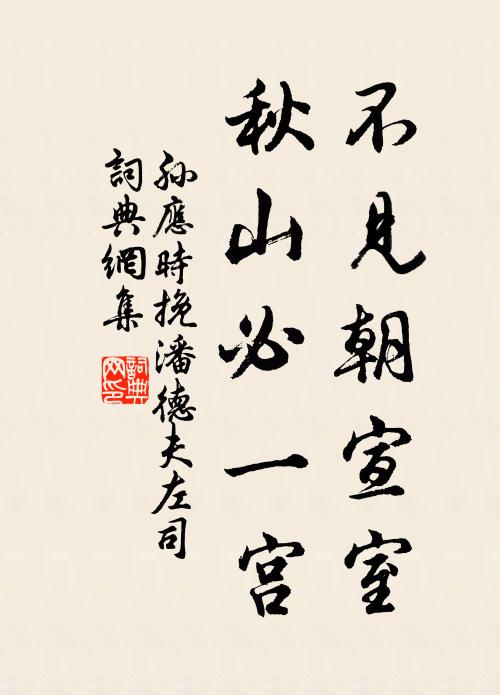 不見朝宣室
秋山必一宮
孙應時挽潘德夫左司
詞典網集
詞典網印